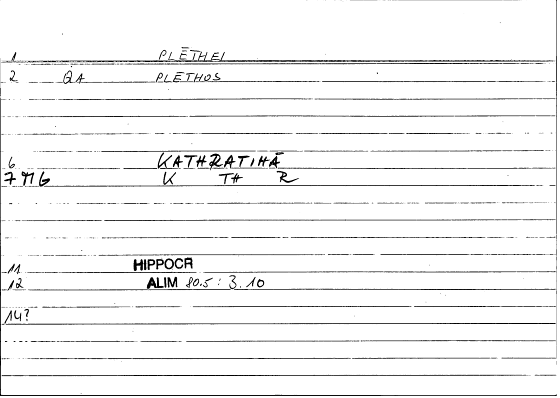 1 PLĒTHEI
2 QA PLETHOS
6 KATHRATIHĀ
7 MG K TH R
11 HIPPOCR
12 ALIM 80.5 : 3.10
14?